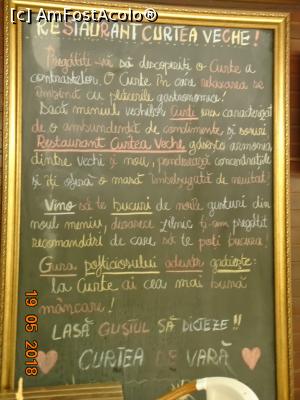 [c] AmFostAcolo®
RESTAURANT CURTEA VECHE!
Pregătiți-vă să descoperiți o Curte a
contrastelor. O Curte în care relaxarea se
îmbină cu plăcerile gastronomice!
Dacă meniul vechilor Curte era caracterizat
de o amb de condimente și sosuri
Restaurant Curtea Veche găsește armonia
dintre vechi și nou, ponderează contrastele
și îți oferă o masă îmbelșugată de neuitat!
Vino să te bucuri de noile gusturi din
noul meniu, deoarece zilnic ți-am pregătit
recomandări de care să te poți bucura!
Gura pofticiosului adevăr grăiește:
la Curte ai cea mai bună
mâncare!
LASĂ GUSTUL SĂ DICTEZE!!
CURTEA DE VARĂ
19 05 2018